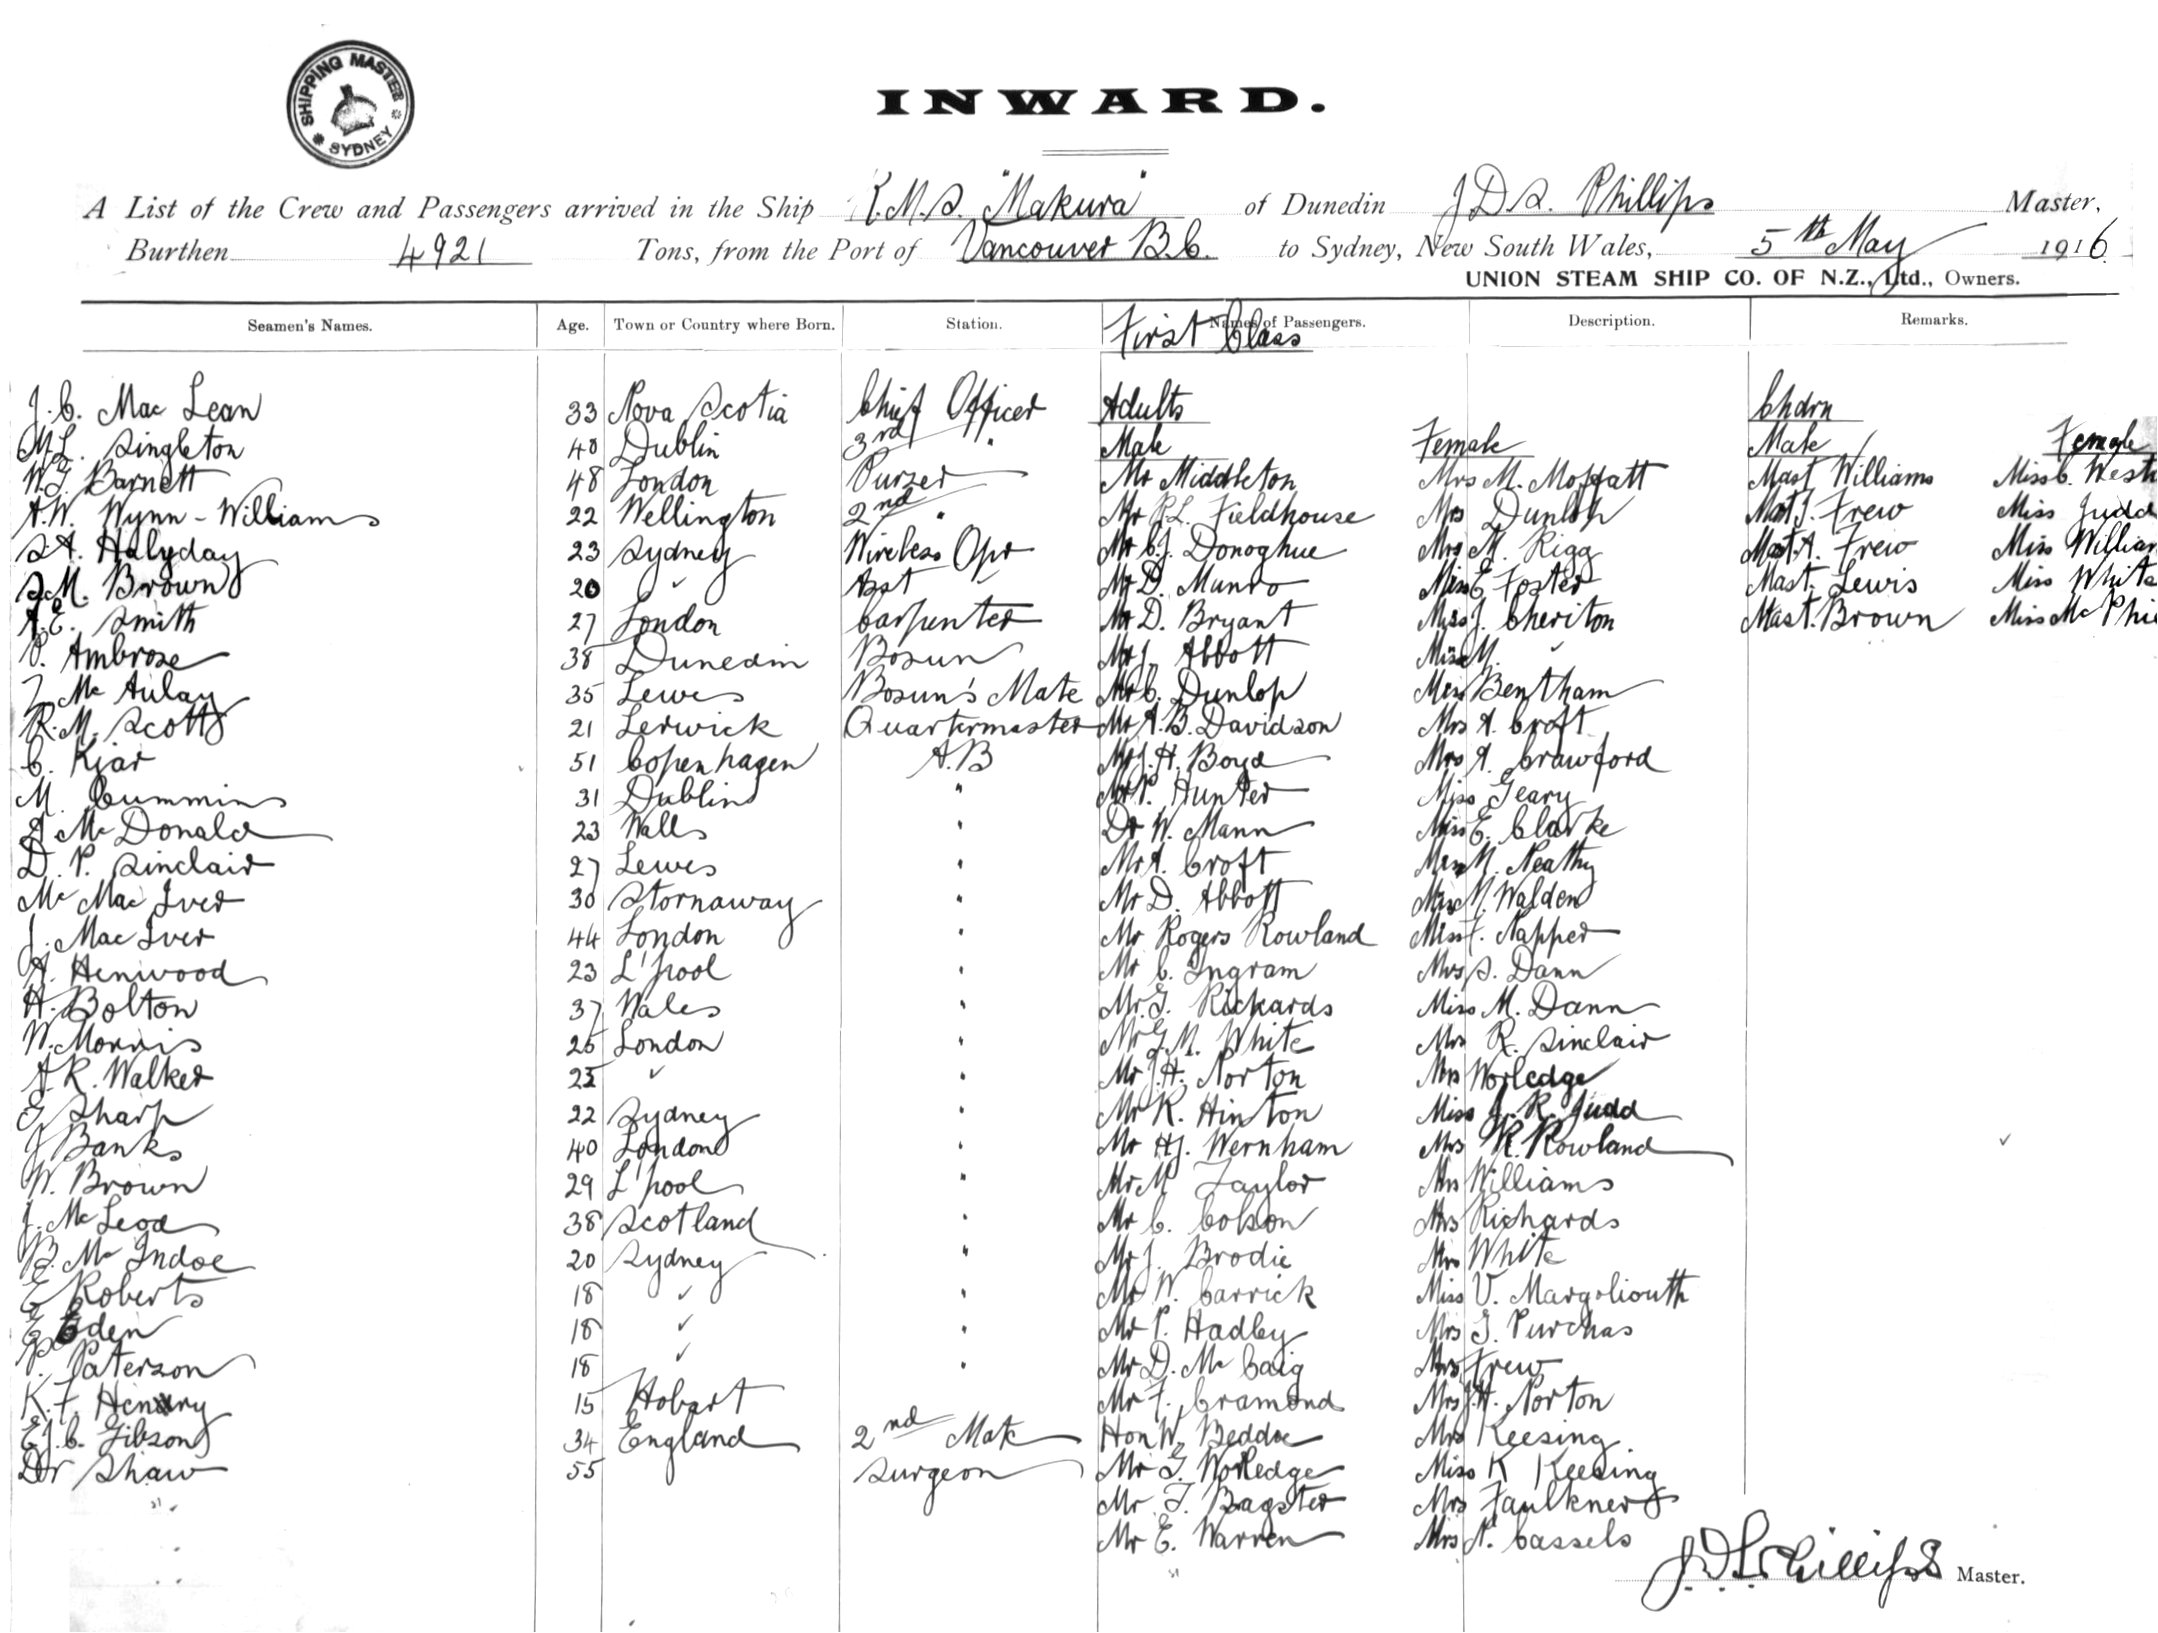 SHIPPING MASTER
SYDNEY
INWARD.
A List of the Crew and Passengers arrived in the Ship R.M.S. "Makura" of Dunedin J D S. Phillips Master,
Burthen 4921 Tons, from the Port of Vancouver B.C. to Sydney, New South Wales, 5th May 1916
UNION STEAM SHIP CO. OF N.Z., Ltd., Owners.
Seamen's Names. Age. Town or Country where Born. Station. Names of Passengers. Description. Remarks.
First Class
J. C. Mac Lean 33 Nova Scotia Chief Officer Adults Chdrn
M.L. Singleton 40 Dublin 3rd " Male Female Male Female
W.G. Barnett 48 London Purser Mr Middleton Mrs M. Moffatt Mast Williams Miss C. West
A.W. Wynn-Williams 22 Wellington 2nd " Mr P.L. Fieldhouse Mrs Dunlop Mast J. Frew Miss Judd
S.A. Halyday 23 Sydney Wireless Opr Mr C.J. Donoghue Mrs M. Rigg Mast. A. Frew Miss William
S.M. Brown 20 " Asst " Mr D. Munro Miss E Foster Mast. Lewis Miss White
A.E. Smith 27 London Carpenter Mr D. Bryant Miss J. Cheriton Mast. Brown Miss Mc Phi
P. Ambrose 38 Dunedin Bosun Mr J. Abbott Miss M. "
Mc Aulay 35 Lewes Bosun's Mate Mr C. Dunlop Bentham
R.M. Scott 21 Lerwick Quartermaster Mr A.B. Davidson Mrs A. Croft
C. Kjar 51 Copenhagen A.B Mr J.H. Boyd Mrs A. Crawford
M. Cummins 31 Dublin " Mr P. Hunter Miss Geary
Mc Donald 23 Walls " Dr W. Mann Miss E. Clarke
D. P. Sinclair 27 Lewes " Mr A. Croft M. Neathy
Mc Mac Iver 30 Stornaway " Mr D. Abbott M. Walden
J. Mac Iver 44 London " Mr Rogers Rowland Miss F. Napper
A. Henwood 23 L'pool " Mr C. Ingram Mrs S. Dann
H. Bolton 37 Wales " Mr. G. Rickards Miss M. Dann
W. Morris 26 London " Mr G.M. White Mrs R. Sinclair
A.R. Walker 25 " " Mr J.H. Norton Mrs Worledge
G Sharp 22 Sydney " Mr R. Hinton Miss J. R. Judd
J Banks 40 London " Mr H.J. Wernham Mrs R. Rowland
W. Brown 29 L'pool " Mr M Taylor Mrs Williams
J. Mc Leod 38 Scotland " Mr C. Colson Mrs Richards
B. Mc Indoe 20 Sydney " Mr J. Brodie Mrs White
E Roberts 18 " " Mr W. Carrick Miss V. Margoliouth
E Eden 18 " " Mr P. Hadley Mrs G. Purchas
P. Paterson 18 " " Mr D. Mc Caig Mrs Frew
K.F. Henry 15 Hobart Mr F. Cramond Mrs J.H. Norton
E.J.C. Gibson 34 England 2nd Mate Hon W. Beddoe Mrs Keesing
Dr Shaw 55 Surgeon Mr G. Worledge Miss K Keesing
Mr T. Bagster Mrs Faulkner
Mr E. Warren Mrs N. Cassels
J.D.S. Phillips Master.